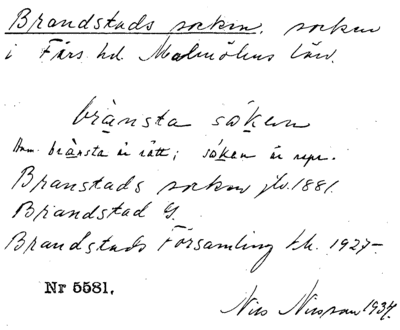 Brandstads socken. socken
i Färs hd. Malmöhus län.
brànsta såken
brànsta är rätt; såken är repr.
Branstads socken jlv. 1881.
Brandstad G.
Brandstads Församling t.h. 1927-
Nr 5581.
Nils Nilsson 1934.